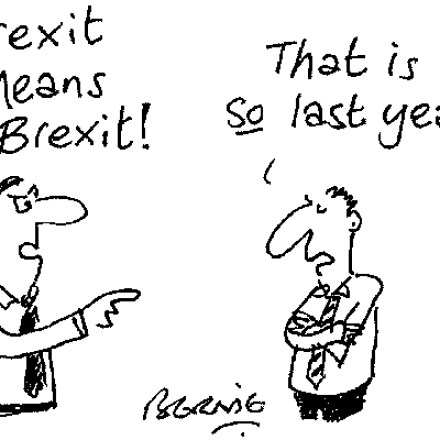 rexit
Means
Brexit!
That is
So last yea
BERNIE